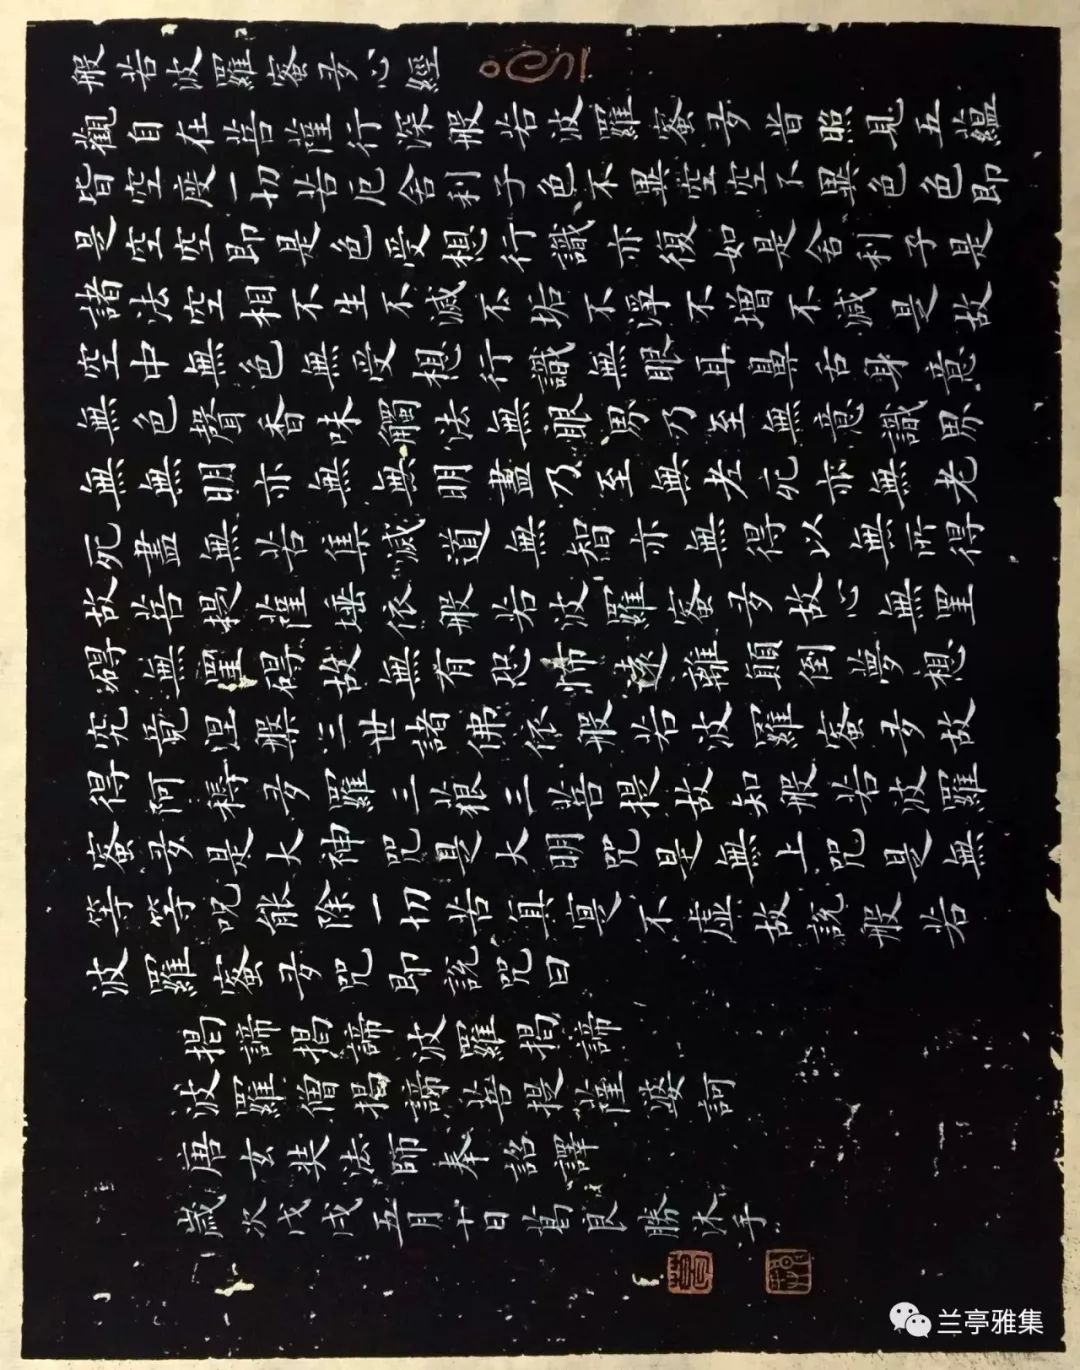 般若波羅蜜多心經
觀自在菩薩行深般若波羅蜜多時照見五蘊
皆空度一切苦厄舍利子色不異空空不異色色即
是空空即是色受想行識亦復如是舍利子是
諸法空相不生不滅不垢不淨不增不減是故
空中無色無受想行識無眼耳鼻舌身意
無色聲香味觸法無眼界乃至無意識界
無無明亦無無明盡乃至無老死亦無老
死盡無苦集滅道無智亦無得以無所得
故菩提薩埵依般若波羅蜜多故心無罣
碍無罣碍故無有恐怖遠離顛倒夢想
究竟涅槃三世諸佛依般若波羅蜜多故
得阿耨多羅三藐三菩提故知般若波羅
蜜多是大神咒是大明咒是無上咒是無
等等咒能除一切苦真寔不虛故說般若
波羅蜜多咒即說咒曰
揭諦揭諦波羅揭諦
波羅僧揭諦菩提薩婆訶
唐玄奘法師奉詔譯
歲次戊戌五月十日葛良勝沐手
兰亭雅集